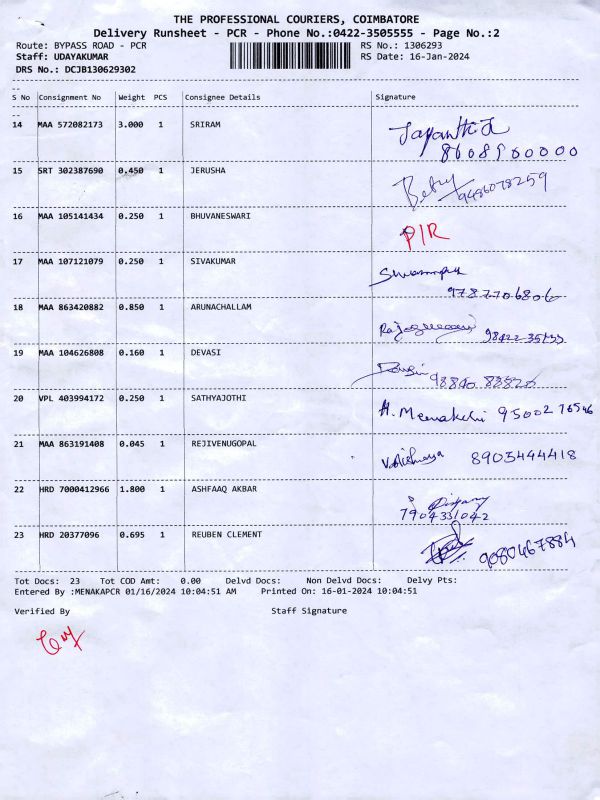 THE PROFESSIONAL COURIERS, COIMBATORE
Delivery Runsheet - PCR - Phone No.:0422-3505555 - Page No.:2
Route: BYPASS ROAD - PCR RS No.: 1306293
Staff: UDAYAKUMAR RS Date: 16-Jan-2024
DRS No.: DCJB130629302
S No Consignment No Weight PCS Consignee Details Signature
14 MAA 572082173 3.000 1 SRIRAM Jayanthi
15 SRT 302387690 0.450 1 JERUSHA 9486078259
16 MAA 105141434 0.250 1 BHUVANESWARI P/R
17 MAA 107121079 0.250 1 SIVAKUMAR
9787706806
18 MAA 863420882 0.850 1 ARUNACHALLAM
19 MAA 104626808 0.160 1 DEVASI
20 VPL 403994172 0.250 1 SATHYAJOTHI H. Meenakshi 9500276546
21 MAA 863191408 0.045 1 REJIVENUGOPAL 8903444418
22 HRD 7000412966 1.800 1 ASHFAAQ AKBAR
7904331042
23 HRD 20377096 0.695 1 REUBEN CLEMENT 9080467884
Tot Docs: 23 Tot COD Amt: 0.00 Delvd Docs: Non Delvd Docs: Delvy Pts:
Entered By :MENAKAPCR 01/16/2024 10:04:51 AM Printed On: 16-01-2024 10:04:51
Verified By Staff Signature